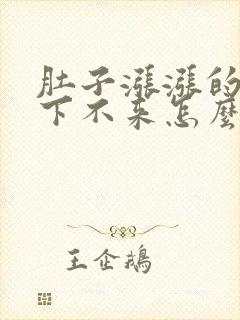 肚子漲漲的
下不来怎麼
王企鵝